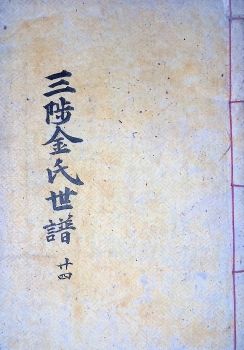 三陟金氏世譜 廿四